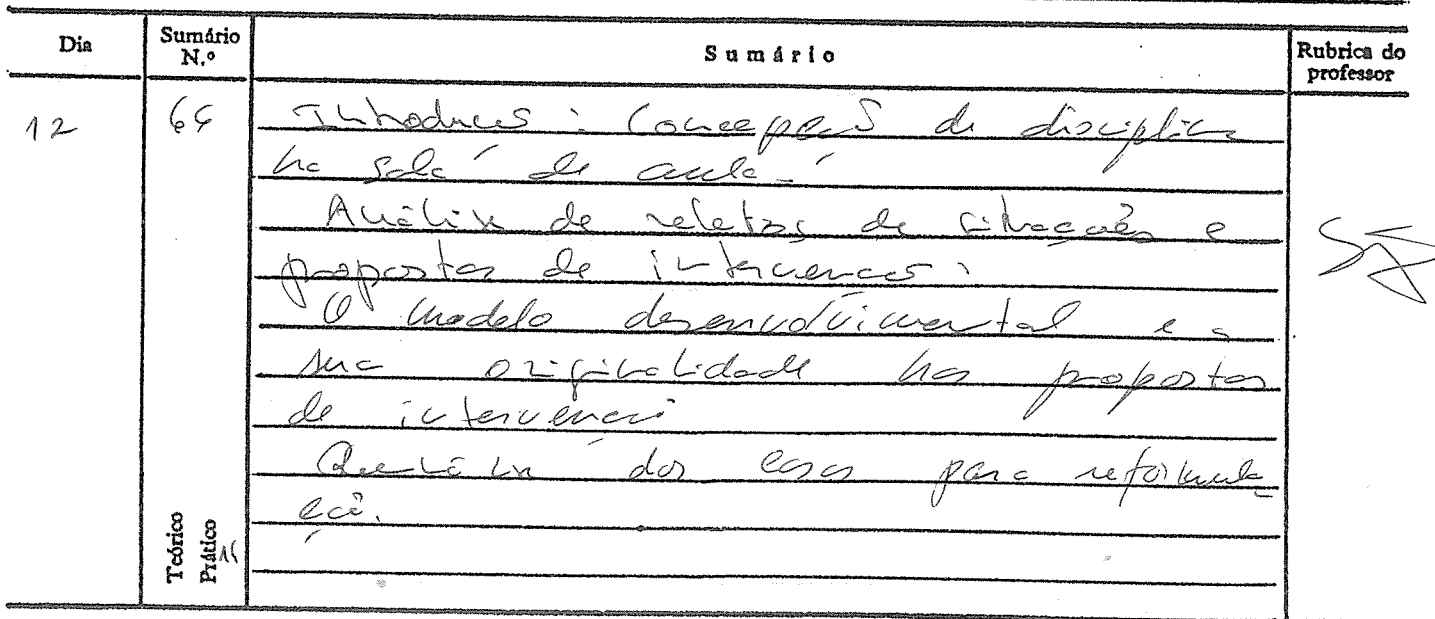 Dia Sumário N.º Sumário Rubrica do professor
12 Introdução: Concepção de disciplina
na sala de aula.
Análise de relatos de situações e
propostas de intervenção.
O modelo desenvolvimental e a
sua originalidade nas propostas
de intervenção
dos casos para reformula
ção.
Teórico
Prático